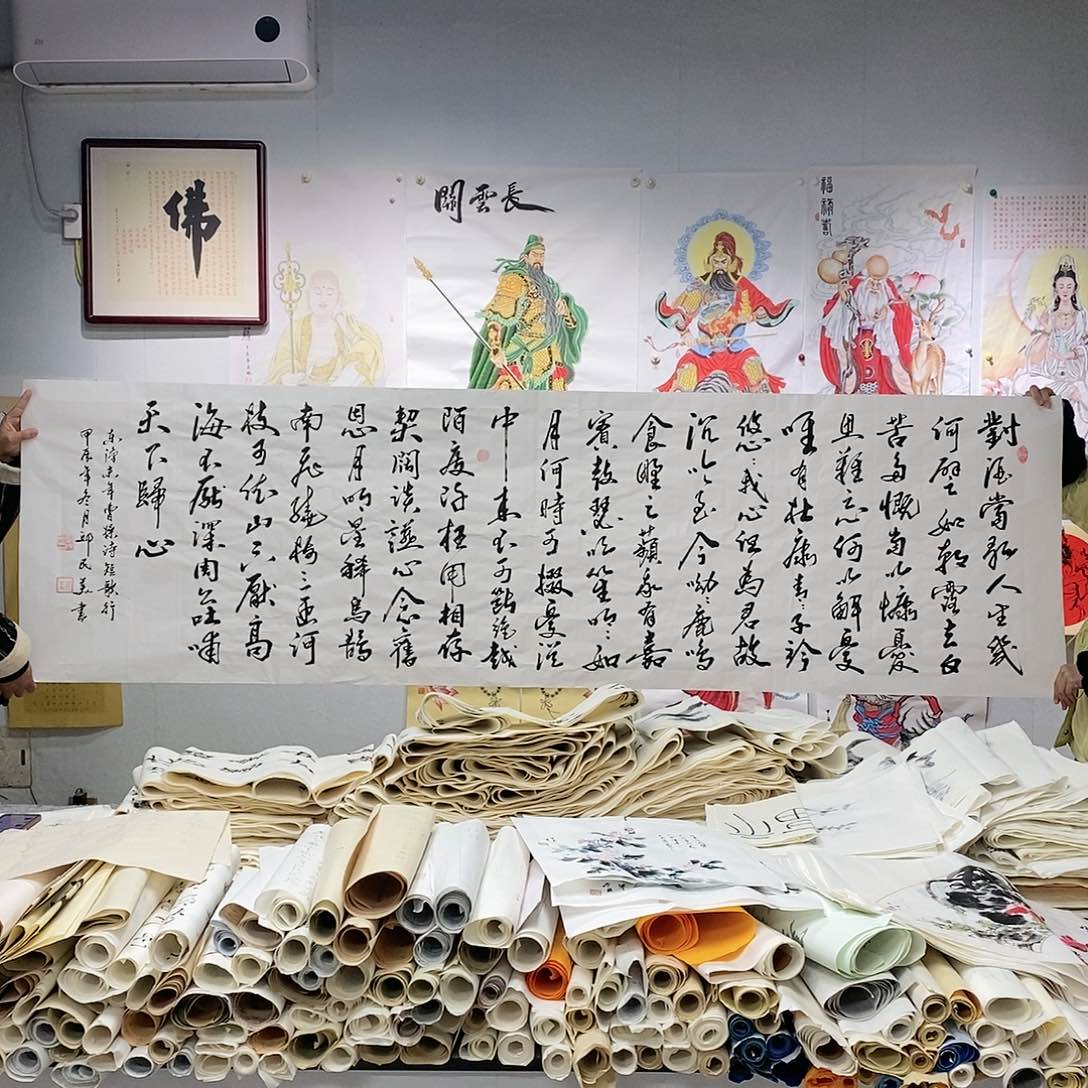 佛
關雲長
福祿壽
對酒當歌人生幾
何譬如朝露去日
苦多慨當以慷憂
思難忘何以解憂
唯有杜康青々子衿
悠々我心但為君故
沉吟至今呦鹿鳴
食野之蘋我有嘉
賓鼓瑟吹笙明々如
月何時可掇憂從
中來不可斷絕越
陌度阡枉用相存
契闊談讌心念舊
恩月明星稀烏鵲
南飛繞樹三匝何
枝可依山不厭高
海不厭深周公吐哺
天下歸心
東漢末年曹操詩短歌行
甲辰年冬月邱民書